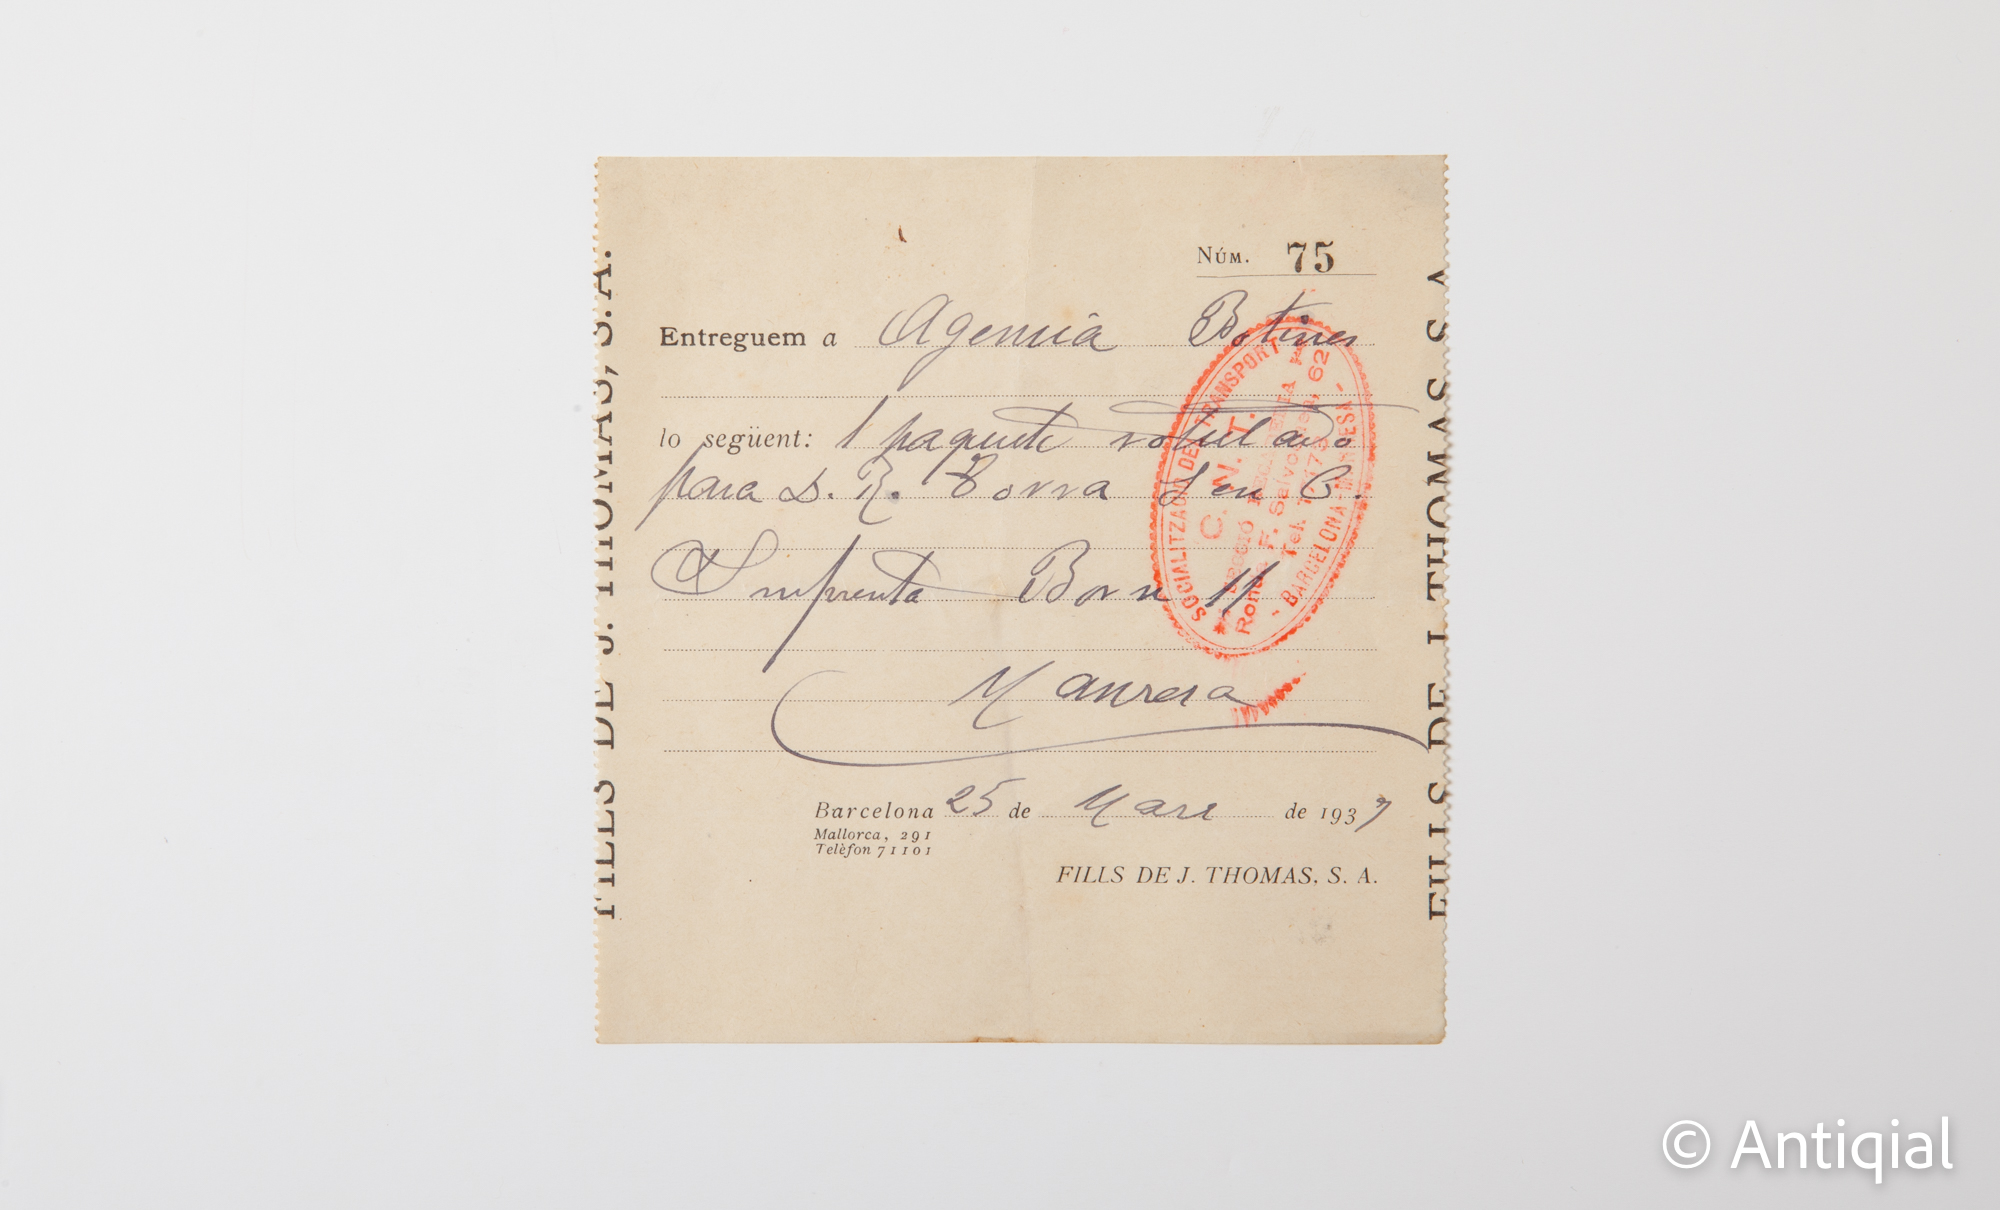 Núm. 75
Entreguem a Agencia Botines
lo següent: 1 paquete rotulado
para D. R. Torra S en C.
Imprenta Born 11
Manresa
Barcelona 25 de Mars de 1937
Mallorca, 291
Telèfon 71101
FILLS DE J. THOMAS, S. A.
FILLS DE J. THOMAS, S. A.
FILLS DE J. THOMAS
SOCIALITZACIÓ DEL TRANSPORT
C. N. T.
SECCIÓ
Ronda F. Salvochea, 62
Tel.
- BARCELONA - MANRESA -
© Antiqial